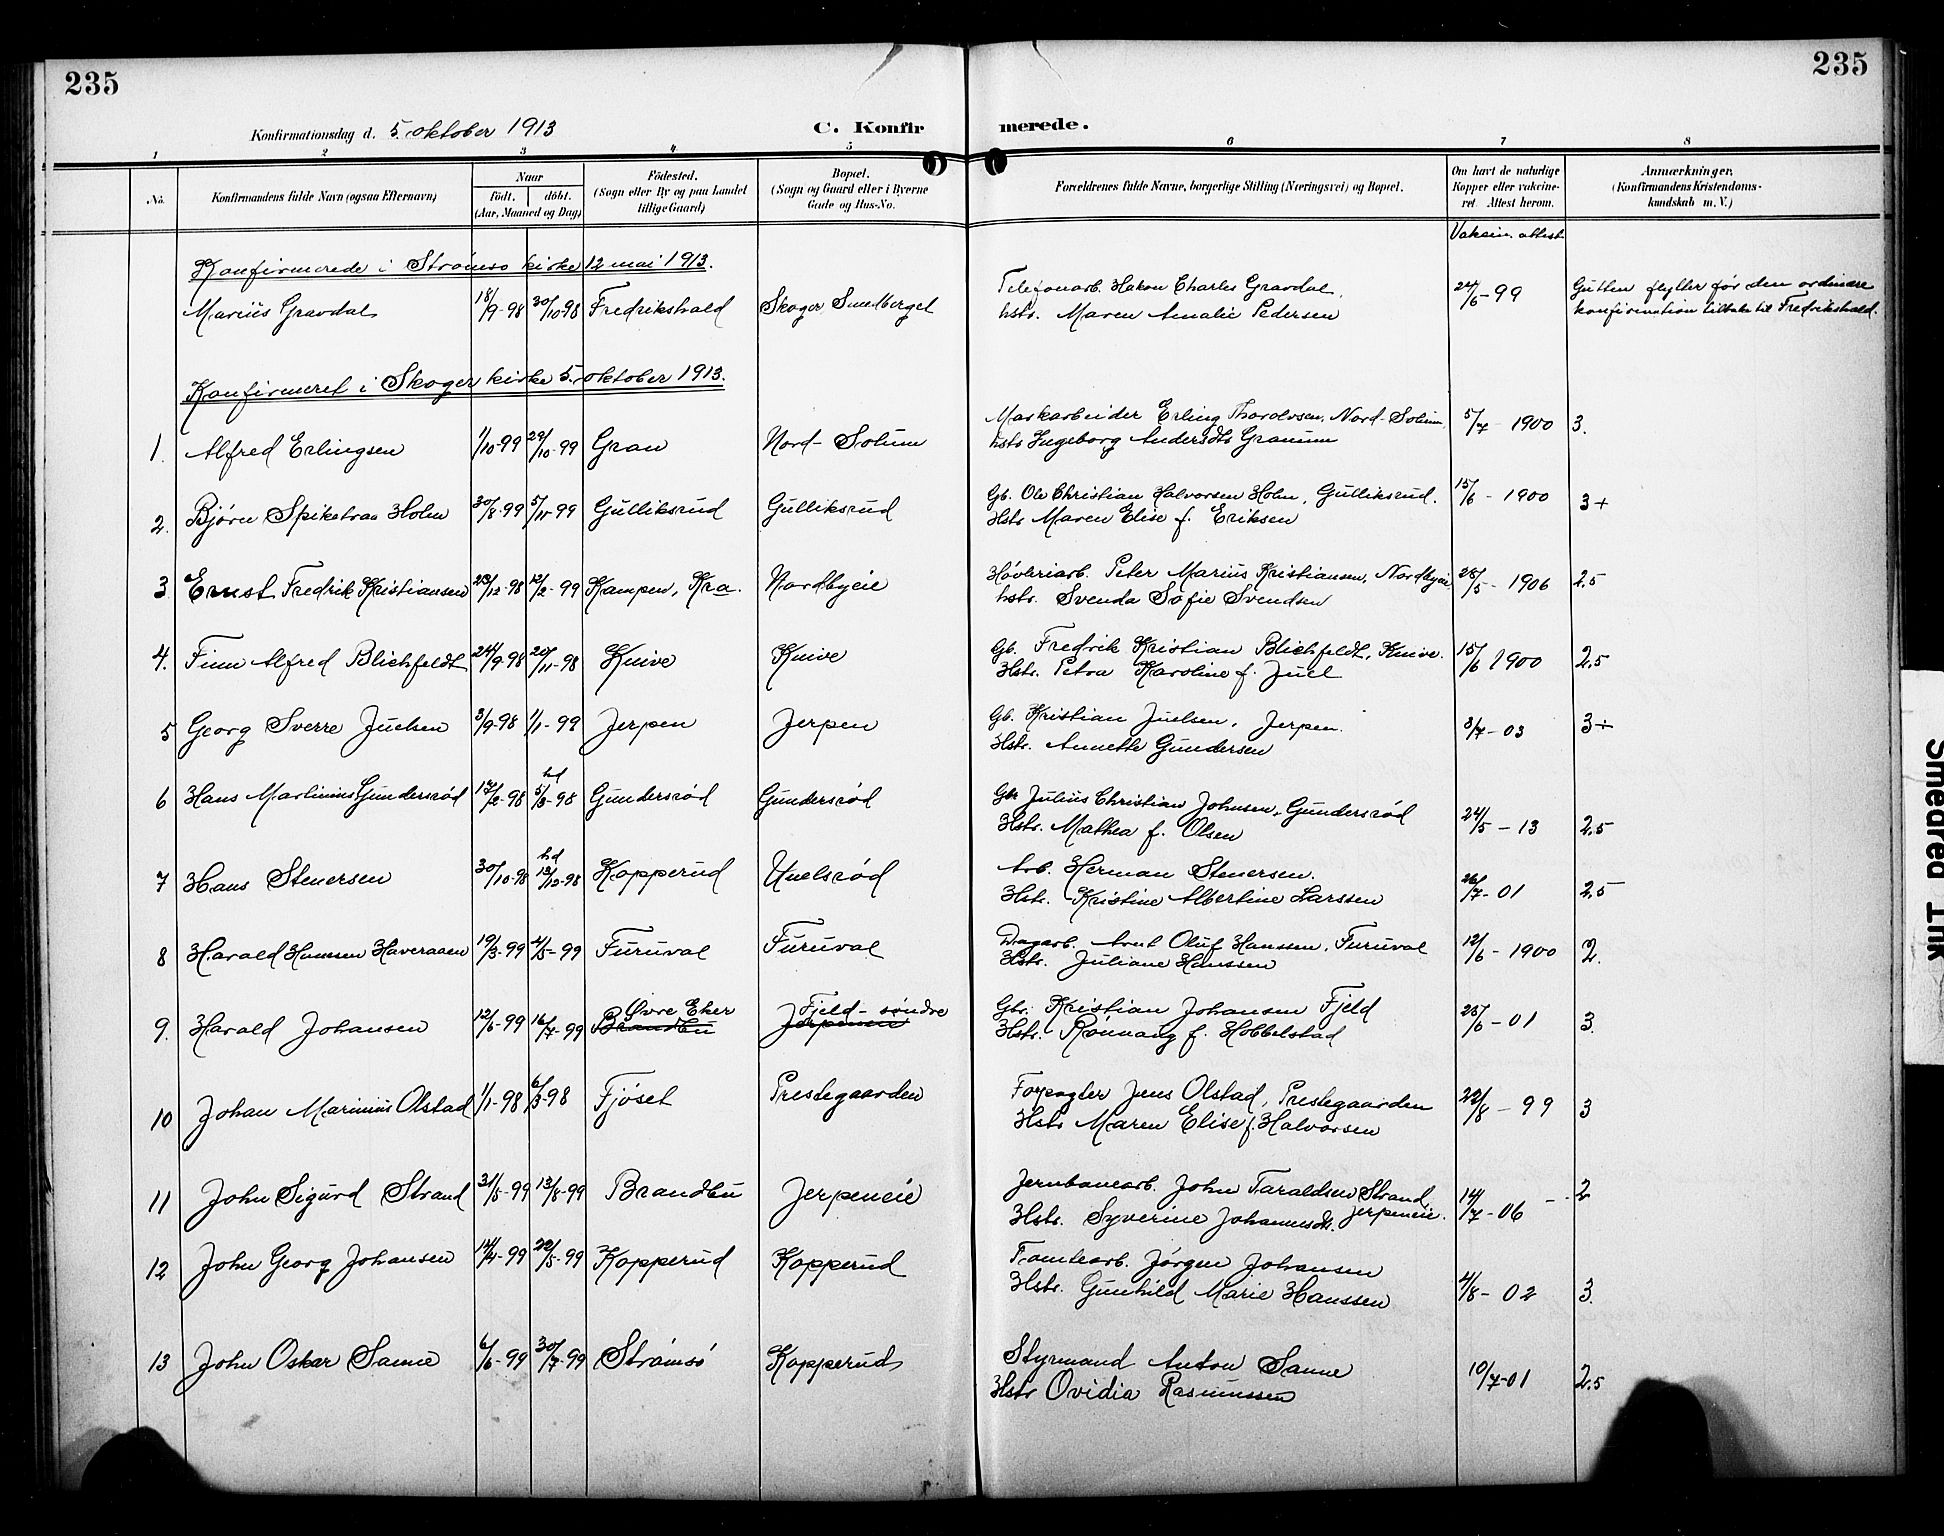 235
235
Konfirmationsdag d. 5. oktober 1913
C. Konfir merede.
1 2 3 4 5 6 7 8
No.
Konfirmandens fulde Navn (ogsaa Efternavn)
Naar
født. døbt.
(Aar, Maaned og Dag)
Fødested.
(Sogn eller By og paa Landet
tillige Gaard)
Bopæl.
(Sogn og Gaard eller i Byerne
Gade og Hus-No.
Forældrenes fulde Navne, borgerlige Stilling (Næringsvei) og Bopæl.
Om havt de naturlige
Kopper eller vakcine-
ret Attest herom.
Anmærkninger,
(Konfirmandens Kristendoms-
kundskab m. V.)
Vaksin. attest
Konfirmerede i Strømsø kirke 12 mai 1913.
Marius Gravdal 18/9-98 30/10-98 Fredrikshald Skoger Sundberget
Telefonarb. Hakon Charles Gravdal,
hstr. Maren Amalie Pedersen
24/5-99
Gutten flytter før den ordinære
konfirmation tilbake til Fredrikshald.
Konfirmeret i Skoger kirke 5. oktober 1913.
1. Alfred Erlingsen 1/10-99 29/10-99 Gran Nord-Solum
Markarbeider Erling Thorolvsen, Nord-Solum,
hstr Ingeborg Andersdtr Granum
5/7-1900 3.
2. Bjørn Spiketraa Holm 30/8-99 5/11-99 Gulliksrud Gulliksrud
Gb. Ole Christian Halvorsen Holm, Gulliksrud.
Hstr Maren Elise f. Eriksen
15/6-1900 3+
3 Ernst Fredrik Kristiansen 23/12-98 12/2-99 Kampen, Kra. Nordbyeie
Høvleriarb. Peter Marius Kristiansen, Nordbyeie,
hstr. Svenda Sofie Svendsen
28/5-1906 2,5
4. Finn Alfred Blichfeldt 24/9-98 20/11-98 Knive Knive
Gb. Fredrik Kristian Blichfeldt, Knive.
Hstr. Petra Karoline f. Juel
15/6 1900 2,5
5 Georg Sverre Juelsen 3/9-98 1/1-99 Jerpen Jerpen
Gb. Kristian Juelsen, Jerpen.
Hstr. Annette Gundersen
3/7-03 3÷
6 Hans Martinius Gundersrød 17/2-98 hd 5/3-98 Gundersrød Gundersrød
Gbr Julius Christian Johnsen, Gundersrød
Hstr. Mathea f. Olsen
24/5-13 2,5
7 Hans Stenersen 30/10-98 hd 13/12-98 Kopperud Unelsrød
Arb. Herman Stenersen.
Hstr. Kristine Albertine Larssen
26/7-01 2,5
8 Harald Hanssen Haveraaen 19/3-99 4/5-99 Furuval Furuval
Dagarb. Arnt Oluf Hanssen, Furuval
Hstr. Juliane Hanssen
12/6-1900 2.
9. Harald Johansen 12/6-99 16/7-99 Øvre Eker Brandbu Fjeld-søndre Jerpeneie
Gbr. Kristian Johansen Fjeld
Hstr. Rønnaug f. Hobbelstad
25/6-01 3.
10 Johan Marinius Olstad 1/1-98 6/3-98 Fjøset Prestegaarden
Forpagter Jens Olstad, Prestegaarden
Hstr Maren Elise f. Halvorsen
22/8-99 3
11 John Sigurd Strand 31/5-99 13/8-99 Brandbu Jerpeneie
Jernbanearb. John Taraldsen Strand,
Hstr. Syverine Johannesdtr. Jerpeneie.
14/7-06 2
12 John Georg Johansen 14/4-99 22/5-99 Kopperud Kopperud
Tomtearb. Jørgen Johansen
Hstr. Gunhild Marie Hanssen
4/8-02 3.
13 John Oskar Sanne 6/6-99 30/7-99 Strømsø Kopperud
Styrmand Anton Sanne
Hstr Ovidia Rasmussen
10/7-01 2,5
Smedrød Ink